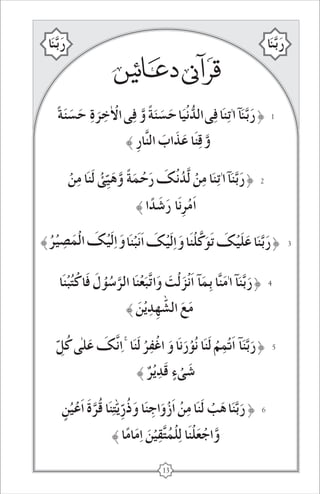 رَبَّنَا
رَبَّنَا
قرآنی دعائیں
1 ﴿ رَبَّنَآ اٰتِنَا فِی الدُّنْیَا حَسَنَةً وَّ فِی الْاٰخِرَةِ حَسَنَةً
وَّ قِنَا عَذَابَ النَّارِ ﴾
2 ﴿ رَبَّنَآ اٰتِنَا مِنْ لَّدُنْکَ رَحْمَةً وَّهَیِّئْ لَنَا مِنْ
اَمْرِنَا رَشَدًا ﴾
3 ﴿ رَبَّنَا عَلَیْکَ تَوَکَّلْنَا وَ اِلَیْکَ اَنَبْنَا وَ اِلَیْکَ الْمَصِیْرُ ﴾
4 ﴿ رَبَّنَآ اٰمَنَّا بِمَآ اَنْزَلْتَ وَاتَّبَعْنَا الرَّسُوْلَ فَاکْتُبْنَا
مَعَ الشّٰهِدِیْنَ ﴾
5 ﴿ رَبَّنَآ اَتْمِمْ لَنَا نُوْرَنَا وَ اغْفِرْ لَنَا ۚ اِنَّکَ عَلٰی کُلِّ
شَیْءٍ قَدِیْرٌ ﴾
6 ﴿ رَبَّنَا هَبْ لَنَا مِنْ اَزْوَاجِنَا وَ ذُرِّیّٰتِنَا قُرَّةَ اَعْیُنٍ
وَّاجْعَلْنَا لِلْمُتَّقِیْنَ اِمَامًا ﴾
13